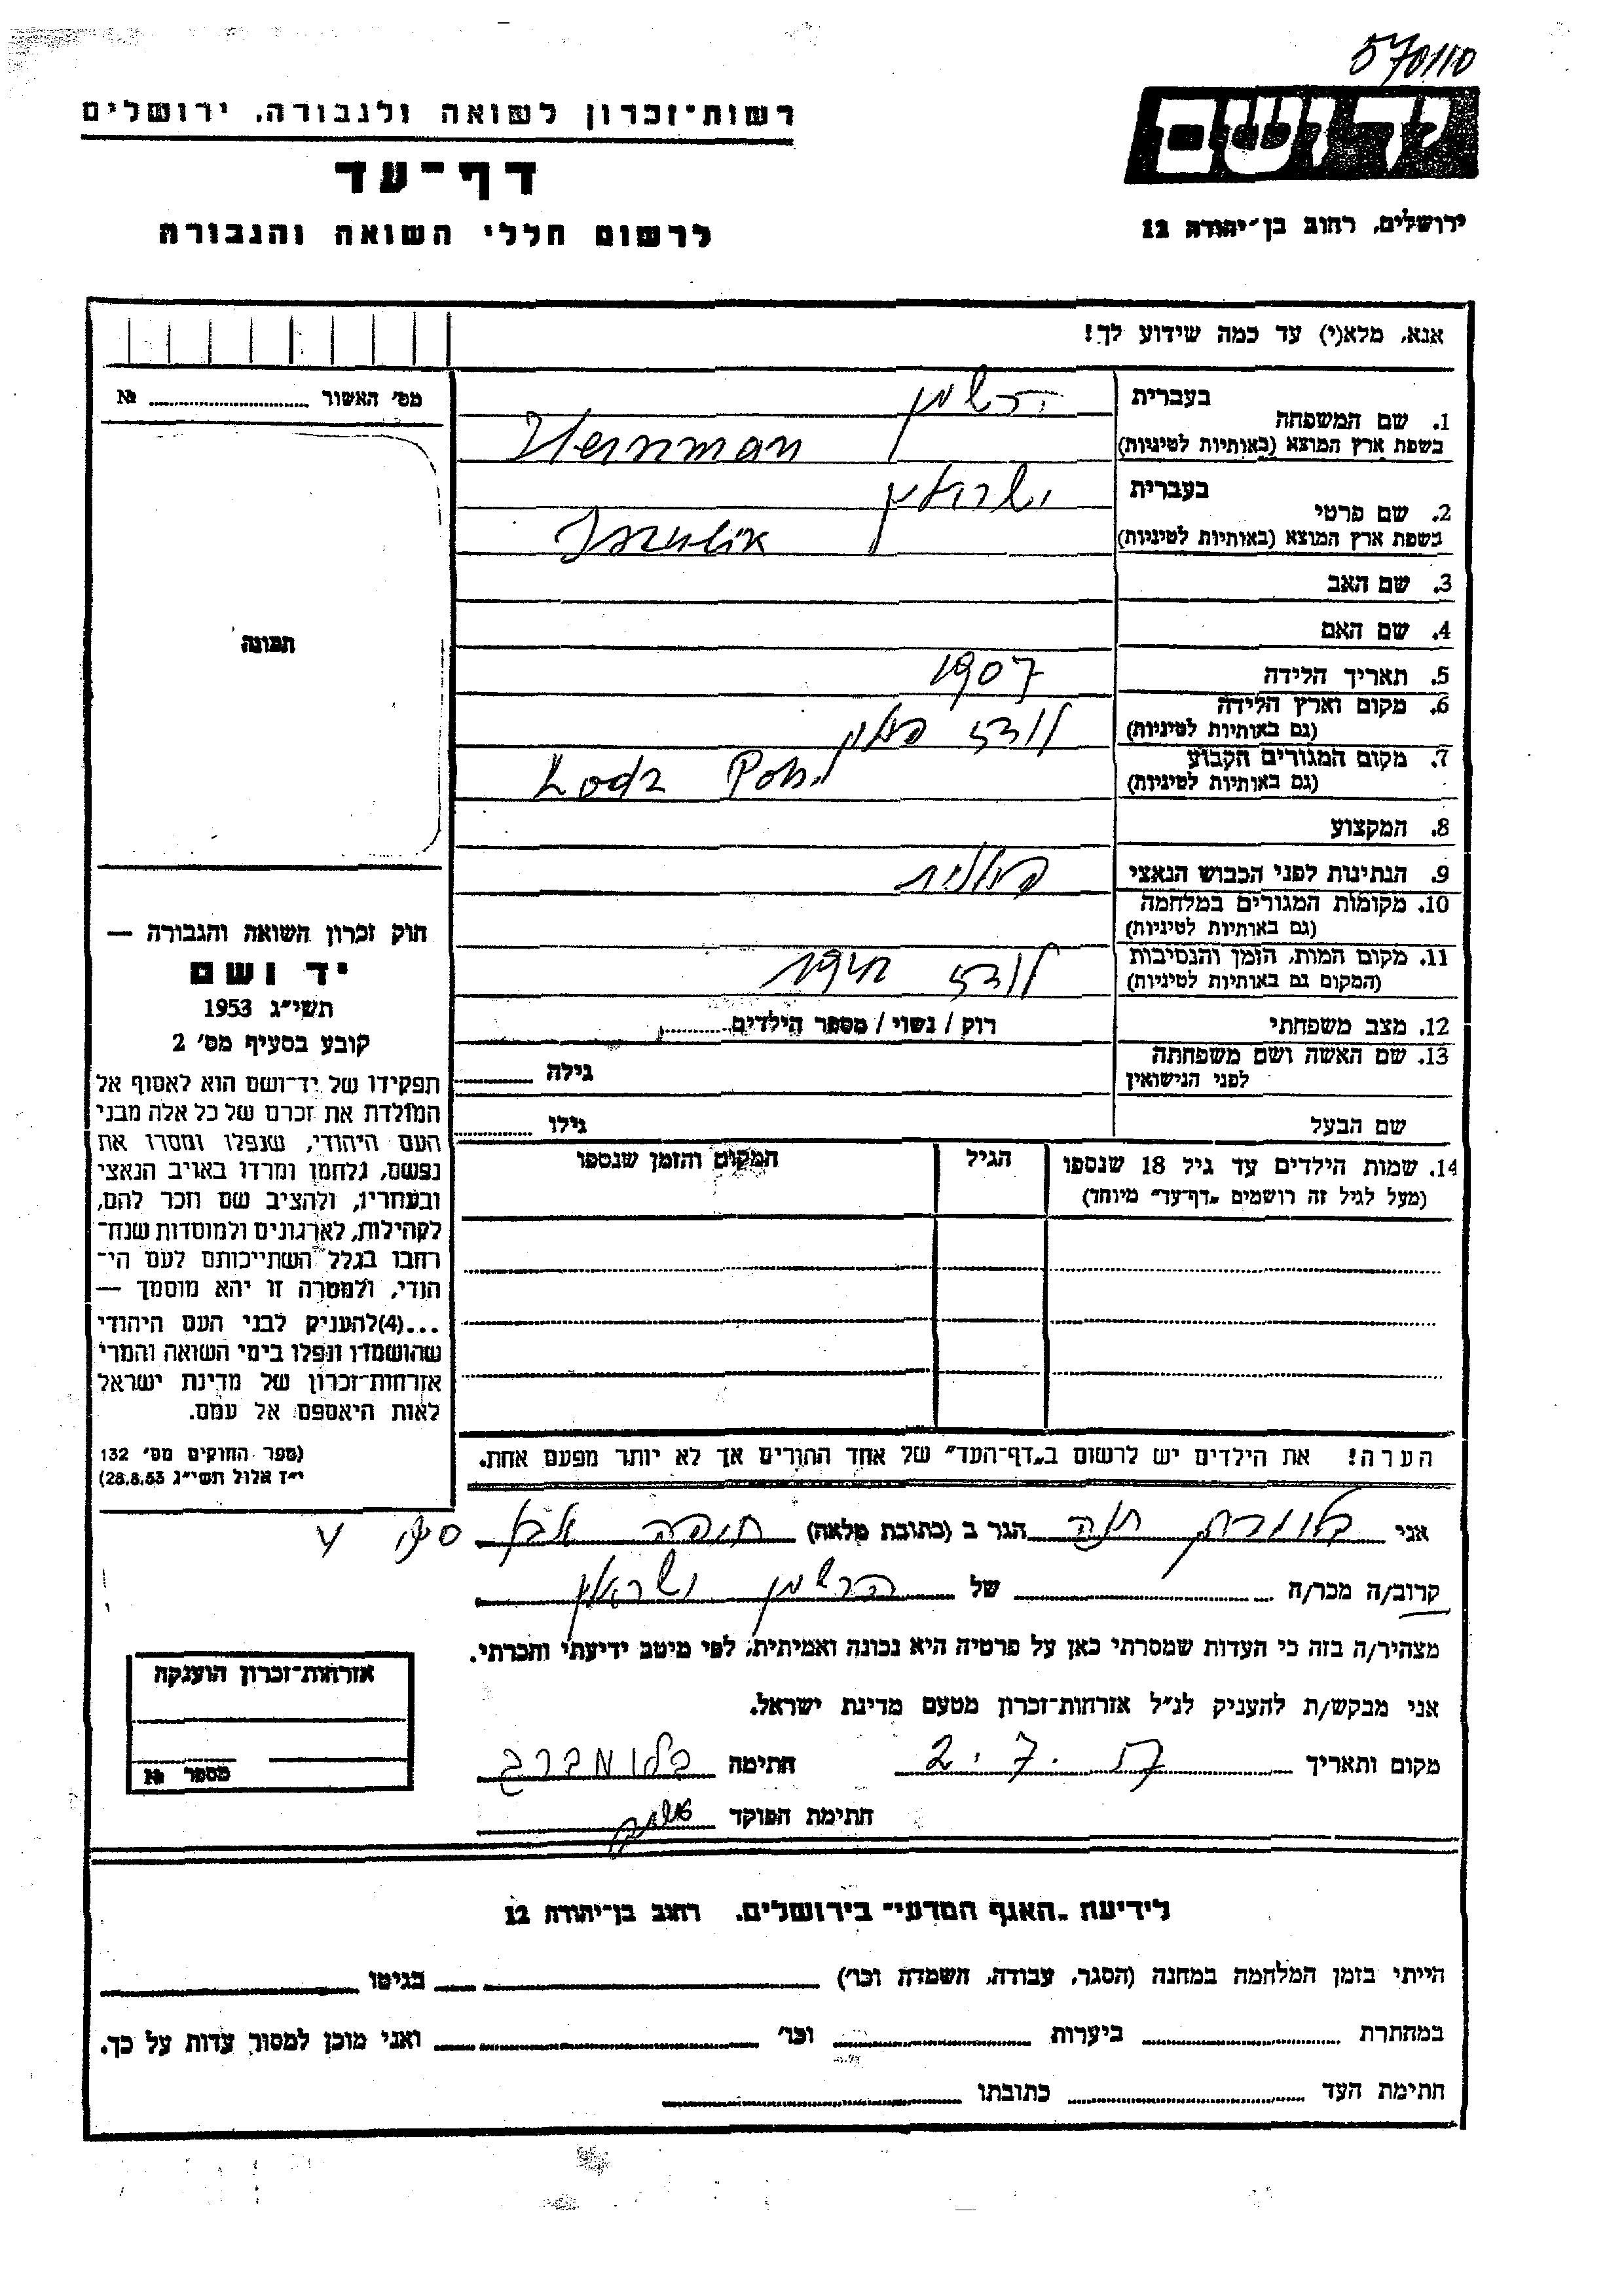 570110
רשות־זכרון לשואה ולגבורה, ירושלים
דף־עד
לרשום חללי השואה והגבורה
ידושם
ירושלים, רחוב בן־יהודה 12
אנא, מלא(י) עד כמה שידוע לך!
מס׳ האשור № 
תמונה
1. שם המשפחה
בעברית הרשמן
בשפת ארץ המוצא (באותיות לטיניות)
2. שם פרטי
בעברית
בשפת ארץ המוצא (באותיות לטיניות)
3. שם האב
4. שם האם
5. תאריך הלידה 1907
6. מקום וארץ הלידה
(גם באותיות לטיניות) לודז פולין
7. מקום המגורים הקבוע
(גם באותיות לטיניות) Lodz
8. המקצוע
9. הנתינות לפני הכבוש הנאצי פולנית
10. מקומות המגורים במלחמה
(גם באותיות לטיניות)
11. מקום המות, הזמן והנסיבות
(המקום גם באותיות לטיניות) לודז
12. מצב משפחתי רוק / נשוי / מספר הילדים
13. שם האשה ושם משפחתה
לפני הנישואין גילה
שם הבעל גילו
14. שמות הילדים עד גיל 18 שנספו
(מעל לגיל זה רושמים „דף־עד” מיוחד)
הגיל
המקום והזמן שנספו
חוק זכרון השואה והגבורה —
יד ושם
תשי״ג 1953
קובע בסעיף מס׳ 2
תפקידו של יד־ושם הוא לאסוף אל
המולדת את זכרם של כל אלה מבני
העם היהודי, שנפלו ומסרו את
נפשם, נלחמו ומרדו באויב הנאצי
ובעוזריו, ולהציב שם וזכר להם,
לקהילות, לארגונים ולמוסדות שנח־
רחבו בגלל השתייכותם לעם הי־
הודי, ולמטרה זו יהא מוסמך —
...(4)להעניק לבני העם היהודי
שהושמדו ונפלו בימי השואה והמרי
אזרחות־זכרון של מדינת ישראל
לאות היאספם אל עמם.
(ספר החוקים מס׳ 132
י״ז אלול תשי״ג 28.8.53)
הערה! את הילדים יש לרשום ב„דף־העד” של אחד ההורים אך לא יותר מפעם אחת.
אני חנה הגר ב (כתובת מלאה)
קרוב/ה מכר/ה של הרשמן
מצהיר/ה בזה כי העדות שמסרתי כאן על פרטיה היא נכונה ואמיתית, לפי מיטב ידיעתי והכרתי.
אני מבקש/ת להעניק לנ״ל אזרחות־זכרון מטעם מדינת ישראל.
מקום ותאריך 2.7.57 חתימה בלומברג
חתימת הפוקד
אזרחות־זכרון הוענקה
מספר №
לידיעת „האגף המדעי” בירושלים, רחוב בן־יהודה 12
הייתי בזמן המלחמה במחנה (הסגר, עבודה, השמדה וכו׳) בגיטו
במחתרת ביערות וכו׳ ואני מוכן למסור עדות על כך.
חתימת העד כתובתו